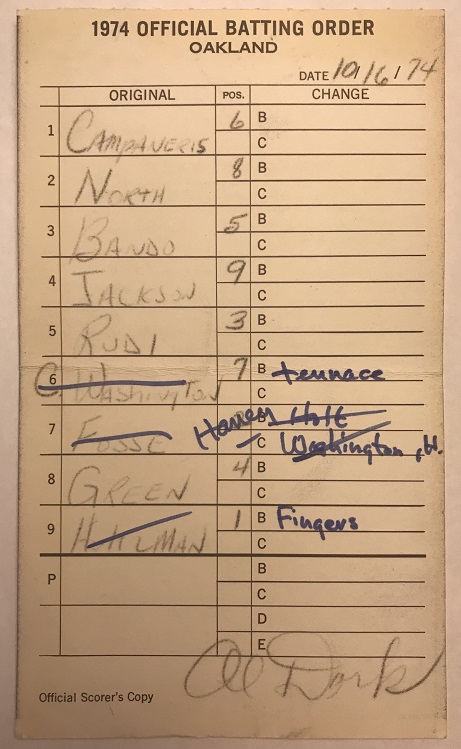 1974 OFFICIAL BATTING ORDER
OAKLAND
DATE 10/6/74
ORIGINAL POS. CHANGE
1 CAMPANERIS 6 B
C
2 NORTH 8 B
C
3 BANDO 5 B
C
4 JACKSON 9 B
C
5 RUDI 3 B
C
6 C. WASHINGTON 7 B tennace
C
7 FOSSE Haney B Holt
C Washington, H.
8 GREEN 4 B
C
9 HOLTZMAN 1 B Fingers
C
P B
C
D
E
Al Dark
Official Scorer's Copy